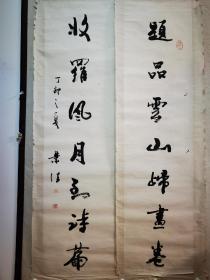 題品雲山歸畫卷
收羅風月到詩篇
丁卯之夏